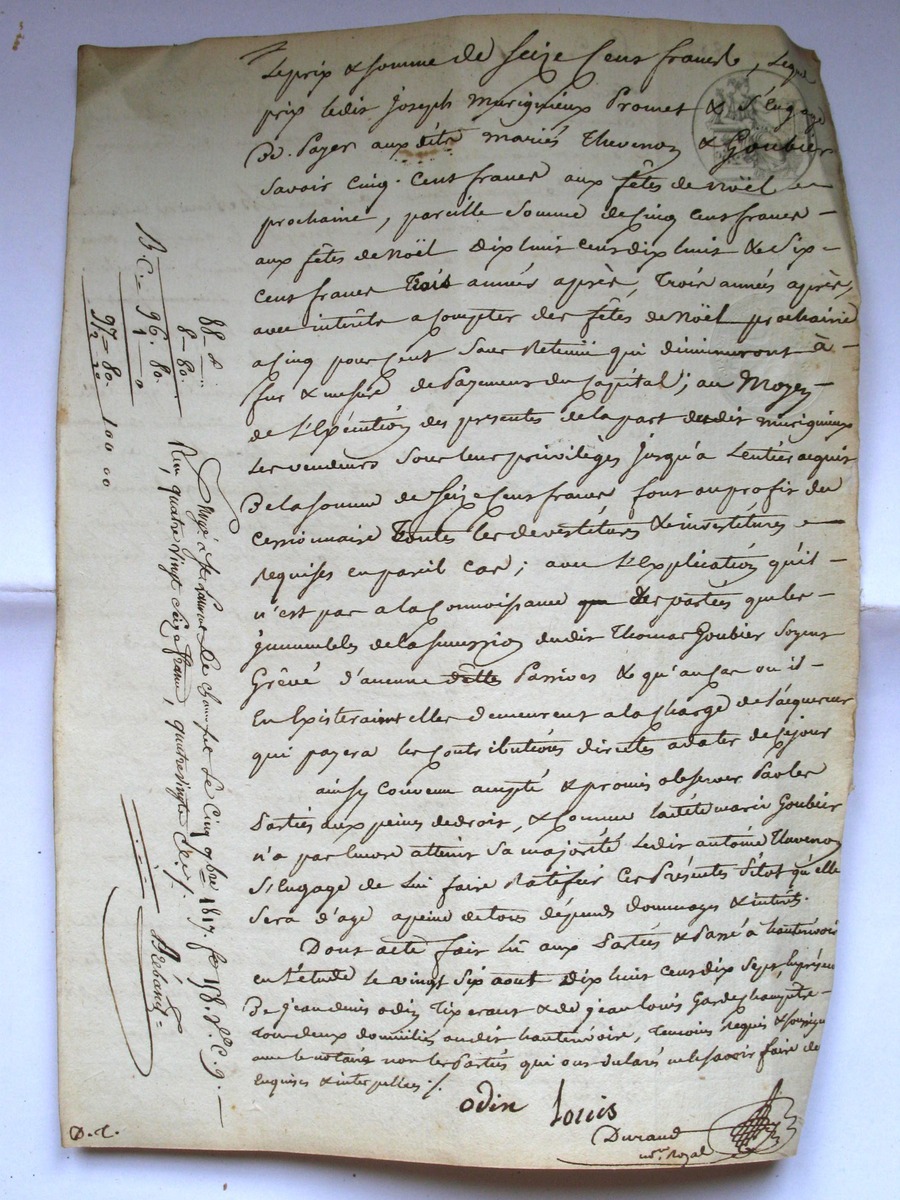 Le prix & somme de Seize Cens francs, Lequel
prix ledit Joseph Murigneux Promet & s'Engage
De Payer aux dits mariés Thevenon & Goubier
Savoir Cinq-Cens francs aux fêtes de noël
prochaine, pareille Somme de Cinq cens francs
aux fêtes de noël dix huit cens dix huit & Six
Cens francs Trois années après, Trois années après,
avec intérêts a Compter des fêtes de Noël prochaine
a Cinq pour Cent Sans Retenue qui diminuront à
fur & mesure de Payemens du Capital; au Moyen
de L'Exécution des presentes de la part dudit murigneux
Les vendeurs Sous leur privilèges Jusqu'a L'entier acquit
De la Somme de Seize Cens francs font au profit du
Cessionnaire Toutes les devestitures & investitures
Requises en pareil Cas; avec L'Explication qu'il
n'est pas a la Connoissance des parties que les
immeubles de la Succession dudit Thomas Goubier Soyent
Grévé d'aucune dette Passives & qu'au Cas ou il
En Existeraient elles demeurent a la Charge de l'acquereur
qui payera les Contributions directes a dater de Ce jour
ainsy Convenu accepté & promis observer Par les
Parties aux peines de droit, & Comme ladite marie Goubier
n'a pas Encore atteint Sa majorité Ledit antoine Thevenon
S'Engage de Lui faire Ratifier Ces Présentes Sitot qu'elle
Sera d'age a peine de tous dépends dommages & intérêts.
Dont acte fait Lû aux Parties & Passé à hauterivoire
en L'étude le vingt Six aout dix huit cens dix Sept, En présence
De Jean denis odin Tixerant & de jean Louis Garde Champetre
tous deux domiciliés audit hauterivoire, temoins requis & Soussignés
avec le notaire non les Parties qui ont declaré ne le savoir faire de ce
Enquises & interpellées ./.
odin Louis
Durand
nre. Royal
D.T.
88-"
8-80
B. C. 96.80
1 0
97-80
100 00
Engé à St Laurent De Chamousset Le Cinq 9bre 1817. fo 158. Vo C 9.
Reçu quatre vingt Seize francs, quatre vingts Cts /.